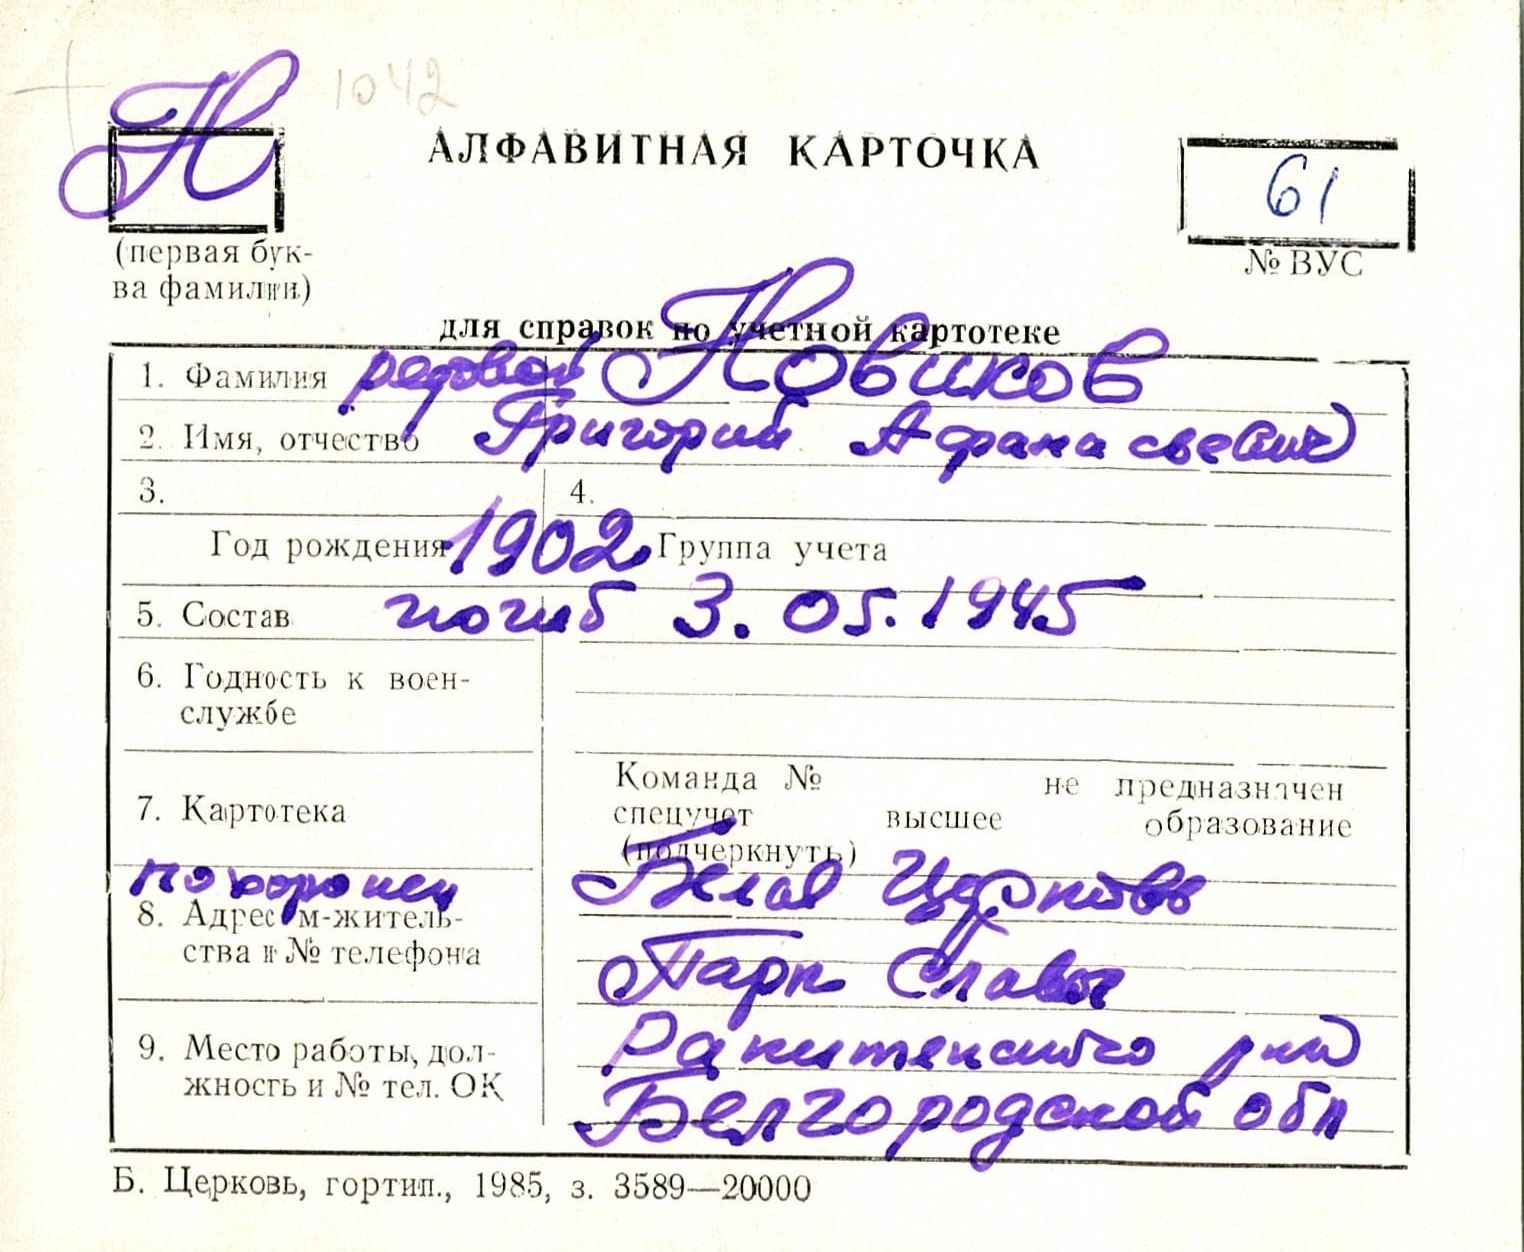 Н 1042
АЛФАВИТНАЯ КАРТОЧКА
61
(первая бук-
ва фамилии)
№ ВУС
для справок по учетной картотеке
1. Фамилия рядовой Новиков
2. Имя, отчество Григорий Афанасьевич
3. 4.
Год рождения 1902 Группа учета
5. Состав погиб 3.05.1945
6. Годность к воен-
службе
7. Картотека
Команда № не предназначен
спецучет высшее образование
(подчеркнуть)
похоронен Белая Церковь
8. Адрес м-житель-
ства и № телефона
Парк Славы
9. Место работы, дол-
жность и № тел. ОК
Ракитенского р-на
Белгородской обл
Б. Церковь, гортип., 1985, з. 3589—20000